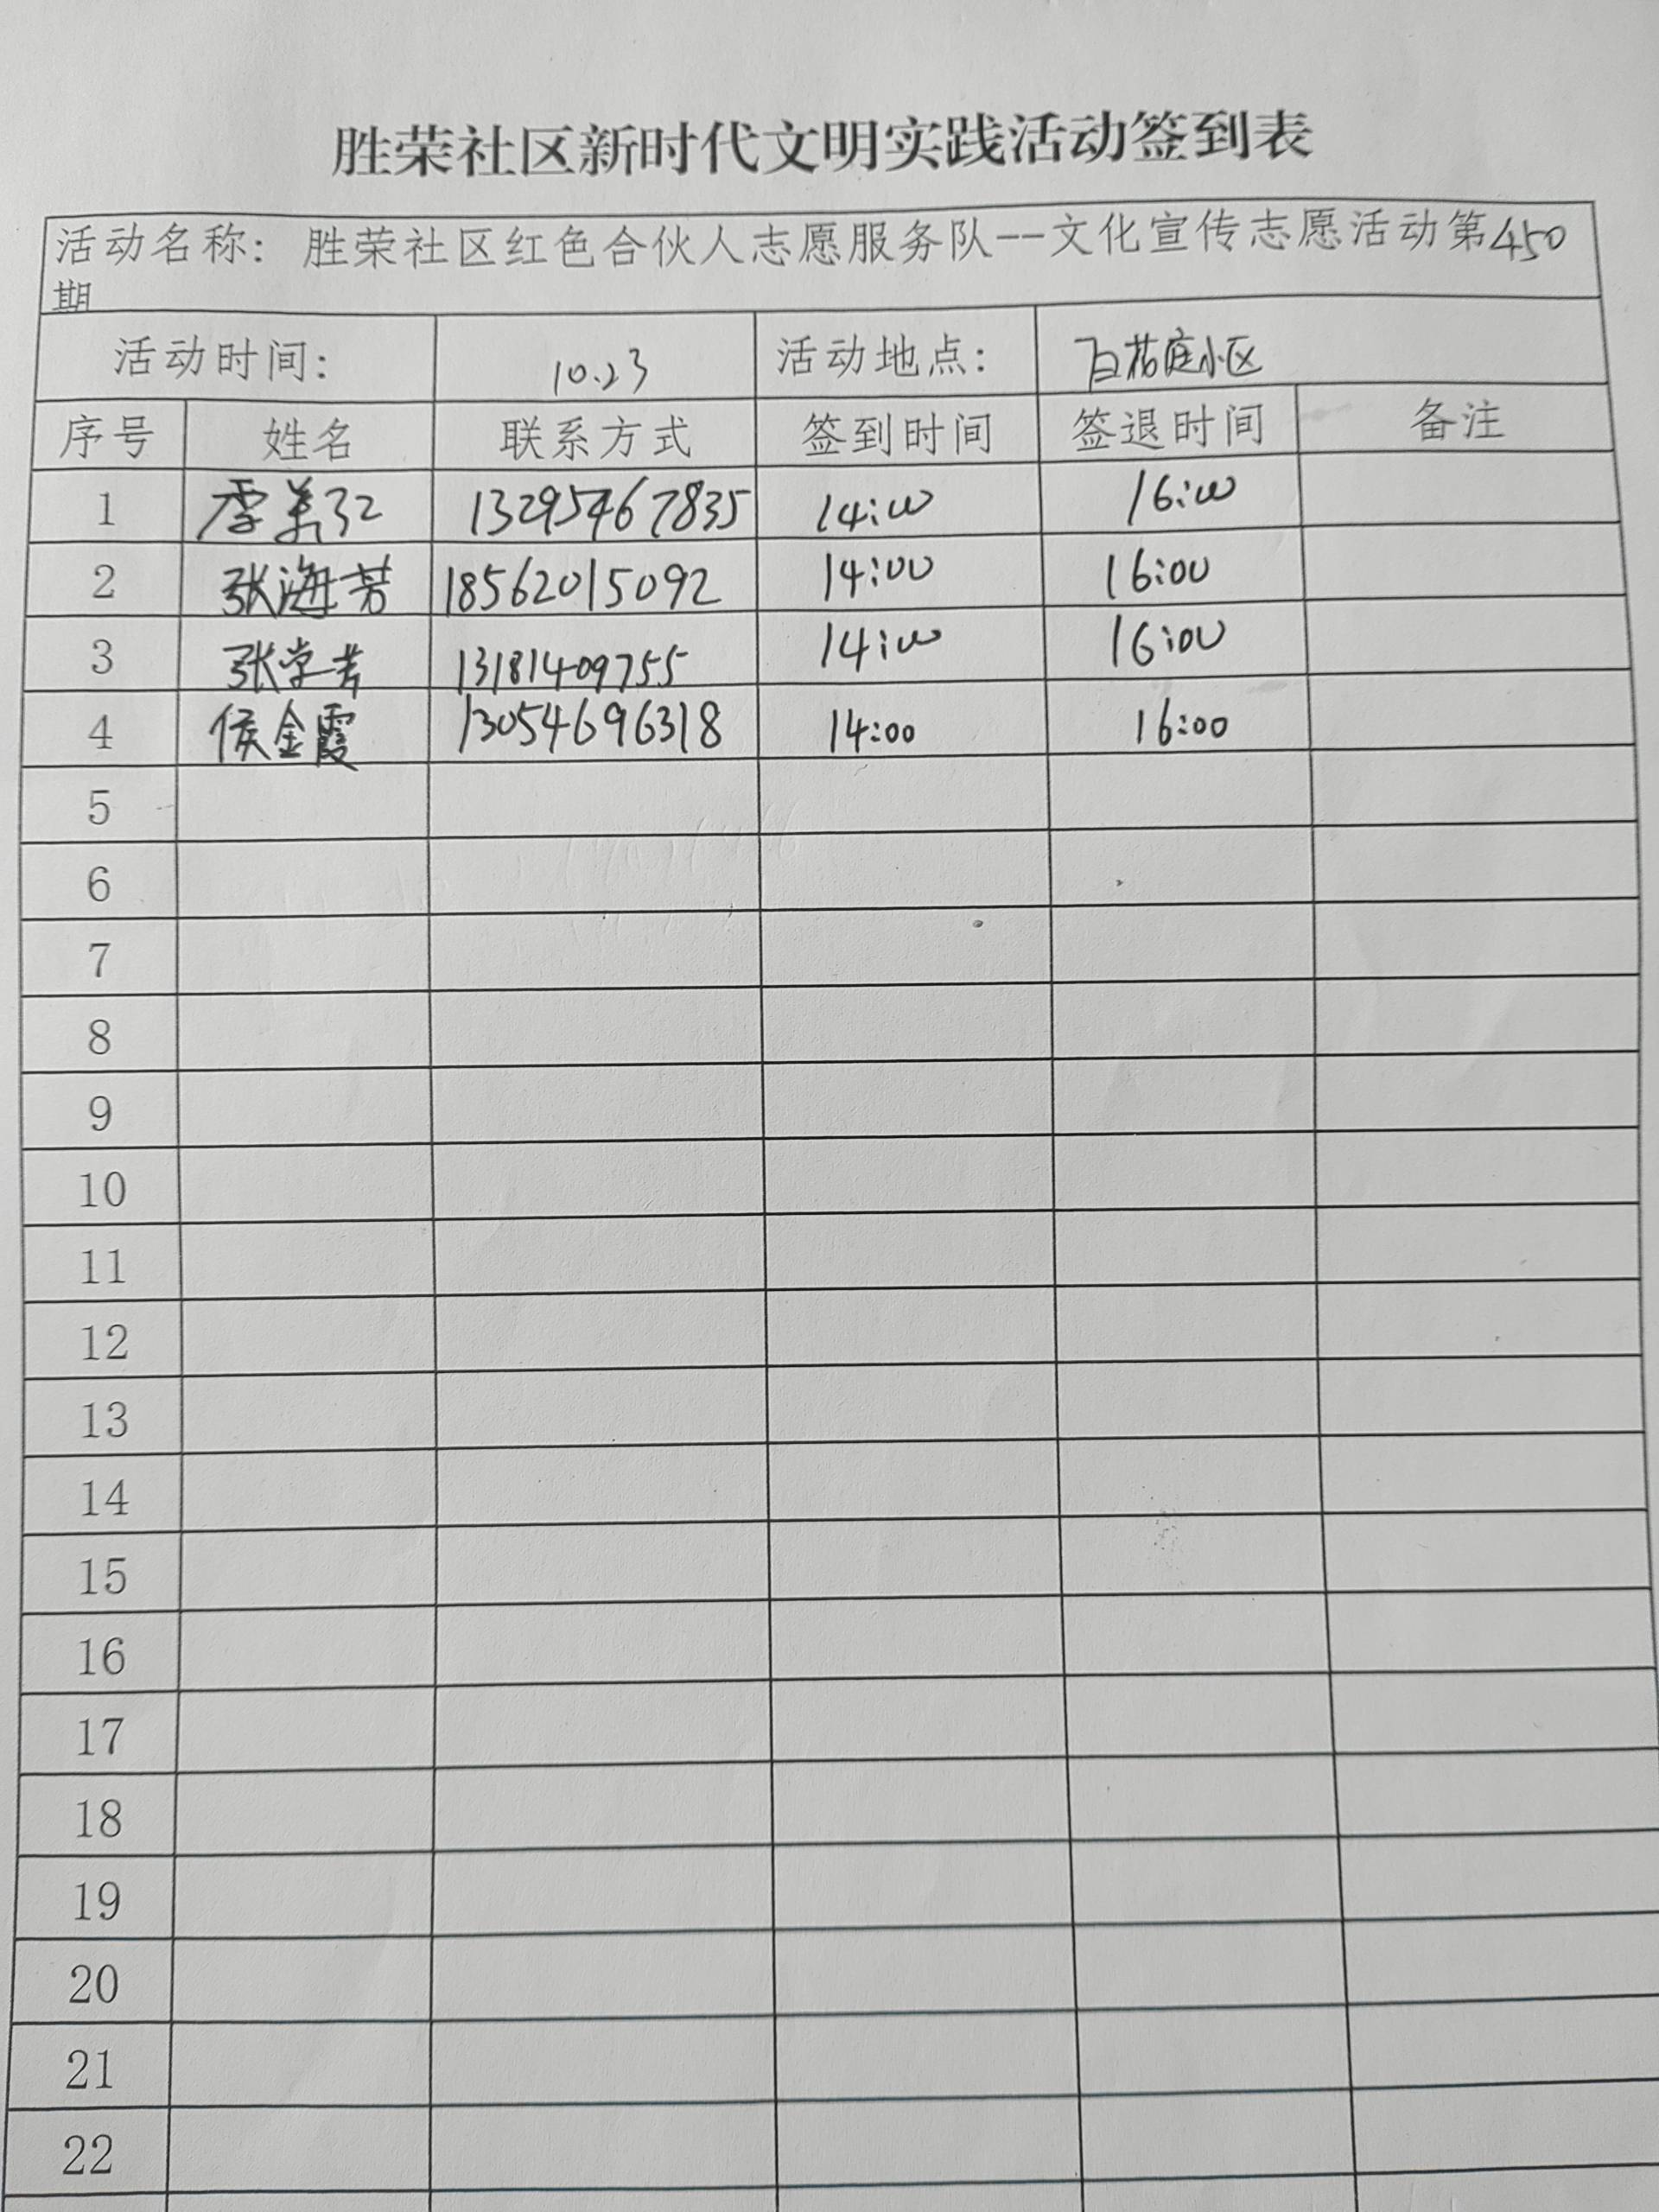 胜荣社区新时代文明实践活动签到表
活动名称：胜荣社区红色合伙人志愿服务队--文化宣传志愿活动第450
期
活动时间： 10.23 活动地点： 百花庭小区
序号 姓名 联系方式 签到时间 签退时间 备注
1 李美红 13295467835 14:00 16:00
2 张海芳 18562015092 14:00 16:00
3 张学 13181409755 14:00 16:00
4 侯金霞 13054696318 14:00 16:00
5
6
7
8
9
10
11
12
13
14
15
16
17
18
19
20
21
22